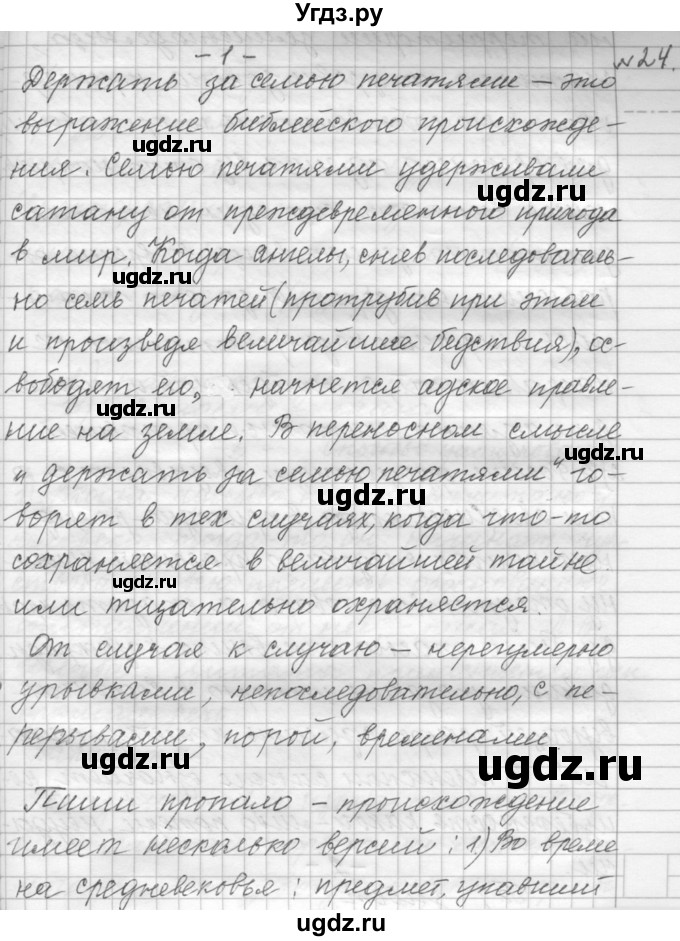 Угдз.ру
- 1 -
№24.
Держать за семью печатями – это
выражение библейского происхожде-
ния. Семью печатями удерживали
сатану от преждевременного прихода
в мир. Когда ангелы, сняв последователь-
но семь печатей (протрубив при этом
и произведя величайшие бедствия), ос-
вободят его, начнется адское правле-
ние на земле. В переносном смысле
„держать за семью печатями" го-
ворят в тех случаях, когда что-то
сохраняется в величайшей тайне
или тщательно охраняется.
От случая к случаю – нерегулярно
урывками, непоследовательно, с пе-
рерывами, порой, временами
Пиши пропало – происхождение
имеет несколько версий: 1) Во време
на средневековья: предмет, упавший
ugdz.ru
ugdz.ru
ugdz.ru
ugdz.ru
ugdz.ru
ugdz.ru
ugdz.ru
ugdz.ru
ugdz.ru
ugdz.ru
ugdz.ru
ugdz.ru